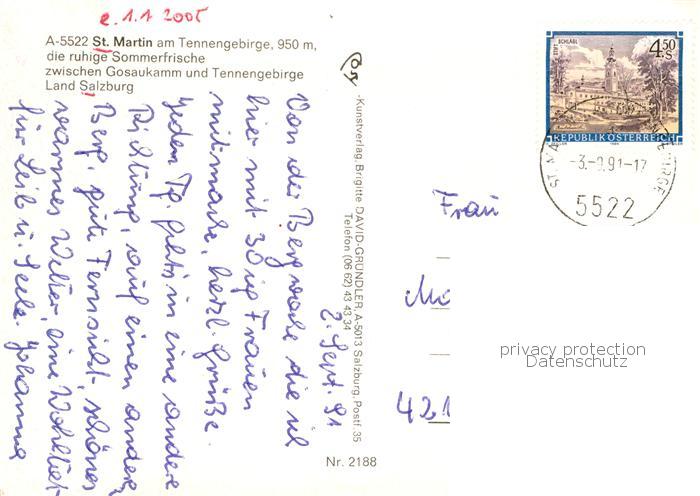 e. 1.1 2005
A-5522 St. Martin am Tennengebirge, 950 m,
die ruhige Sommerfrische
zwischen Gosaukamm und Tennengebirge
Land Salzburg
2. Sept. 91
Von der Bergwoche die ich
hier mit 30 jg Frauen
mitmache, herzl. Grüße.
Jeden Tg. gehts in eine andere
Richtung, auf einen anderen
Berg, gute Fernsicht, schönes
warmes Wetter, eine Wohltat
für Leib u. Seele. Johanna
Kunstverlag, Brigitte DAVID-GRÜNDLER, A-5013 Salzburg, Postf. 35
Telefon (06 62) 43 43 34
Nr. 2188
STIFT SCHLÄGL
4.50 S
REPUBLIK ÖSTERREICH
-3.-9.91-17
5522
Frau
421
privacy protection
Datenschutz